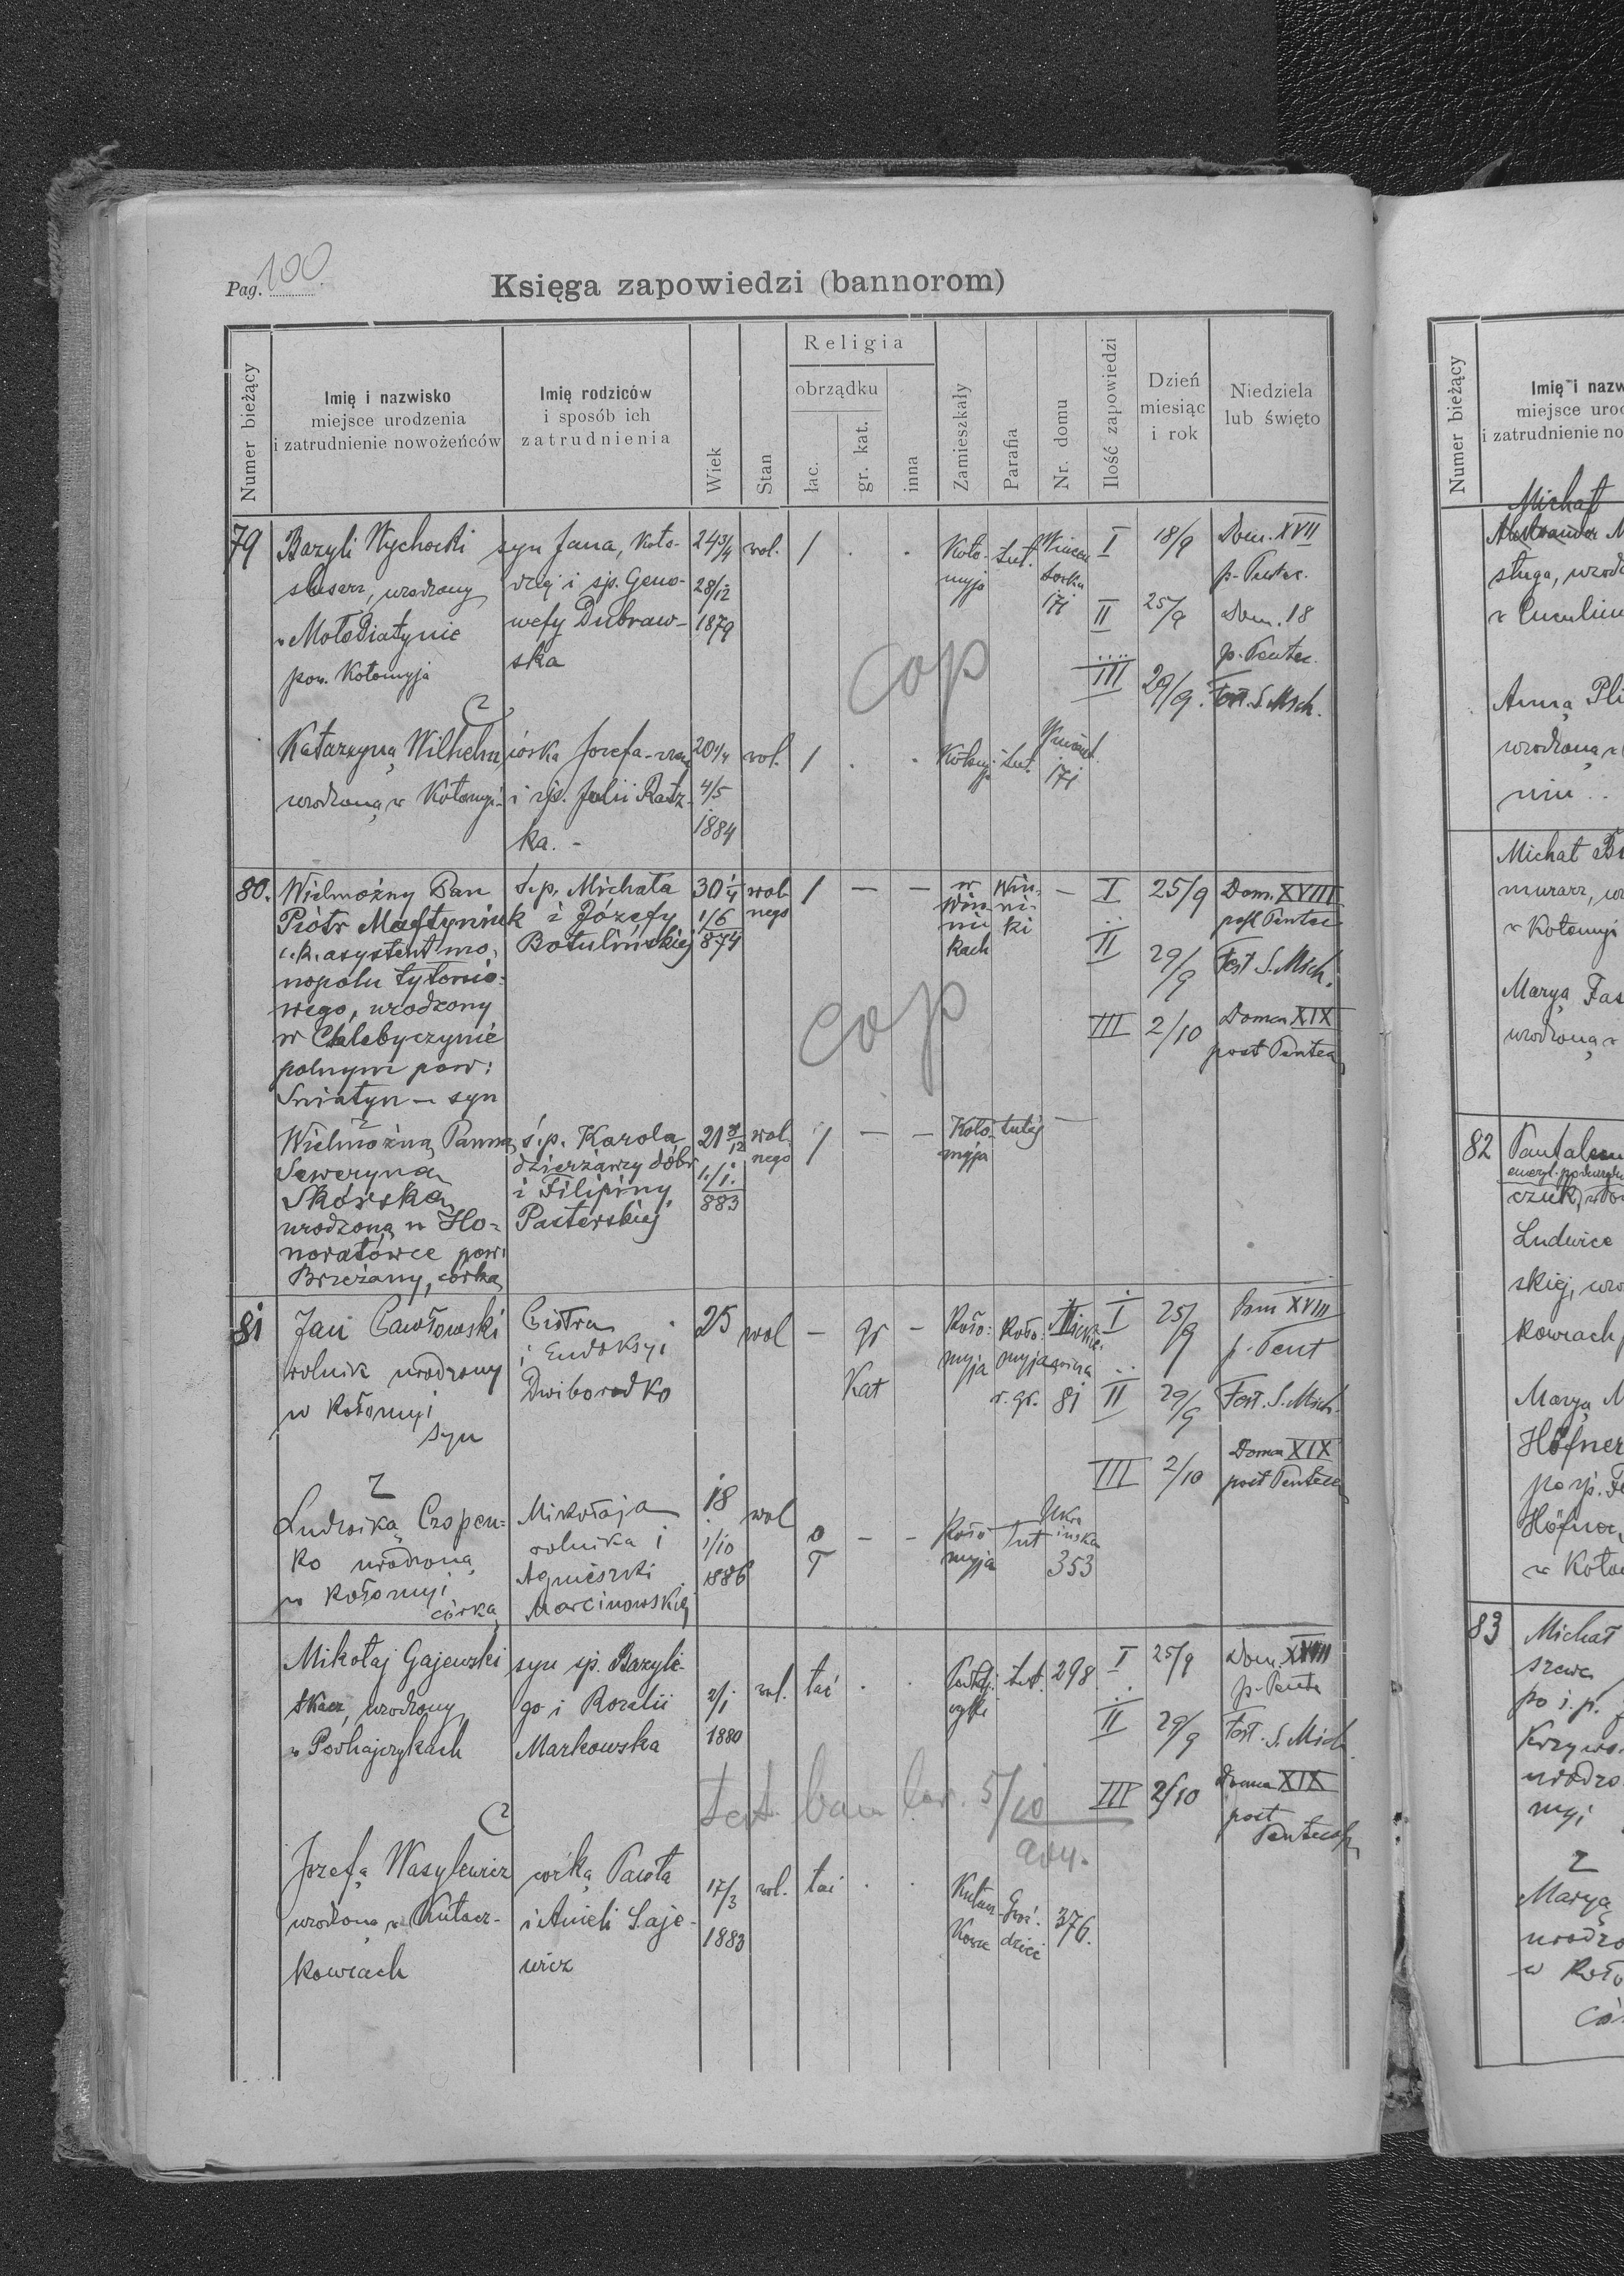 Pag. 100
Księga zapowiedzi (bannorom)
Numer bieżący
Imię i nazwisko
miejsce urodzenia
i zatrudnienie nowożeńców
Imię rodziców
i sposób ich
zatrudnienia
Wiek
Stan
Religia
obrządku
łac.
gr. kat.
inna
Zamieszkały
Parafia
Nr. domu
Ilość zapowiedzi
Dzień
miesiąc
i rok
Niedziela
lub święto
79
Bazyli Wychocki
ślusarz, urodzony
w Mołodiatynie
pow. Kołomyja
syn Jana, koło-
dzej i śp. Geno-
wefy Dubraw-
ska
24 3/4
28/12
1879
wol.
/
Koło-
myja
tut.
171
I 18/9 Dom. XVII
p. Pentec.
II 25/9 Dom. 18
p. Pentec.
III 29/9. Fest. S. Mich.
cop
z
Katarzyną Wilhelm
urodzoną w Kołomyi
córka Józefa
i śp. Julii Ratz-
ka. -
20 1/4
4/5
1884
wol.
/
tut.
171
80.
Wielmożny Pan
Piotr Maftyniuk
c.k. asystent mo-
nopolu tytonio-
wego, urodzony
w Chlebyczynie
polnym pow:
Śniatyn — syn
ś.p. Michała
i Józefy
Botulińskiej
30 1/4
1/6
874
wol-
nego
/ — —
w
Win-
ni-
kach
Win-
ni-
ki
—
I 25/9 Dom. XVIII
post Pentec
II 29/9 Fest S. Mich.
III 2/10 Domca XIX
post Pentec
cop
z
Wielmożną Panną
Seweryną
Skórską
urodzoną w Ho-
noratówce pow:
Brzeżany, córką
ś.p. Karola
dzierżawcy dóbr
i Filipiny
Pasterskiej
21
1/1.
883
wol-
nego
/ — —
Koło-
myja
tutej
—
81
Jan Pawłowski
rolnik urodzony
w Kołomyi
syn
Piotra
i Eudoksyi
Dwiborodko
25
wol
—
gr
Kat
—
Koło-
myja
Koło-
myja
r. gr.
81
I 25/9 Dom XVIII
p. Pent
II 29/9 Fest. S. Mich.
III 2/10 Domca XIX
post Pentec
z
Ludwiką Czopen-
ko urodzoną
w Kołomyi
córką
Mikołaja
rolnika i
Agnieszki
Marcinowskiej
18
1/10
1886
wol
— —
Koło-
myja
tut
353
Mikołaj Gajewski
tkacz, urodzony
w Podhajczykach
syn śp. Bazyle-
go i Rozalii
Markowska
2/1
1880
wol.
łać
tut.
298
I 25/9 Dom XVIII
p. Pente
II 29/9 Fest. S. Mich
III 2/10 Domca XIX
post
Pentecos
5/10
z
Józefą Wasylewicz
urodzoną w Kułacz-
kowcach
córką Pawła
i Anieli Saje-
wicz
17/3
1883
wol.
łać
Kułacz
Kowce
Gwoź-
dziec
376.
Numer bieżący
Imię i nazw
miejsce uroc
i zatrudnienie no
Michał
sługa, urodz
Anna Pli
urodzona w
Michał
murarz, ur
w Kołomyi
Marya
urodzona w
82
Ludwice
skiej, uro
kowcach
Marya M
Höfner
Höfner
w Koło
83
Michał
szewc
po ś. p.
urodzo
myi
z
Maryą
urodzo
w Koło